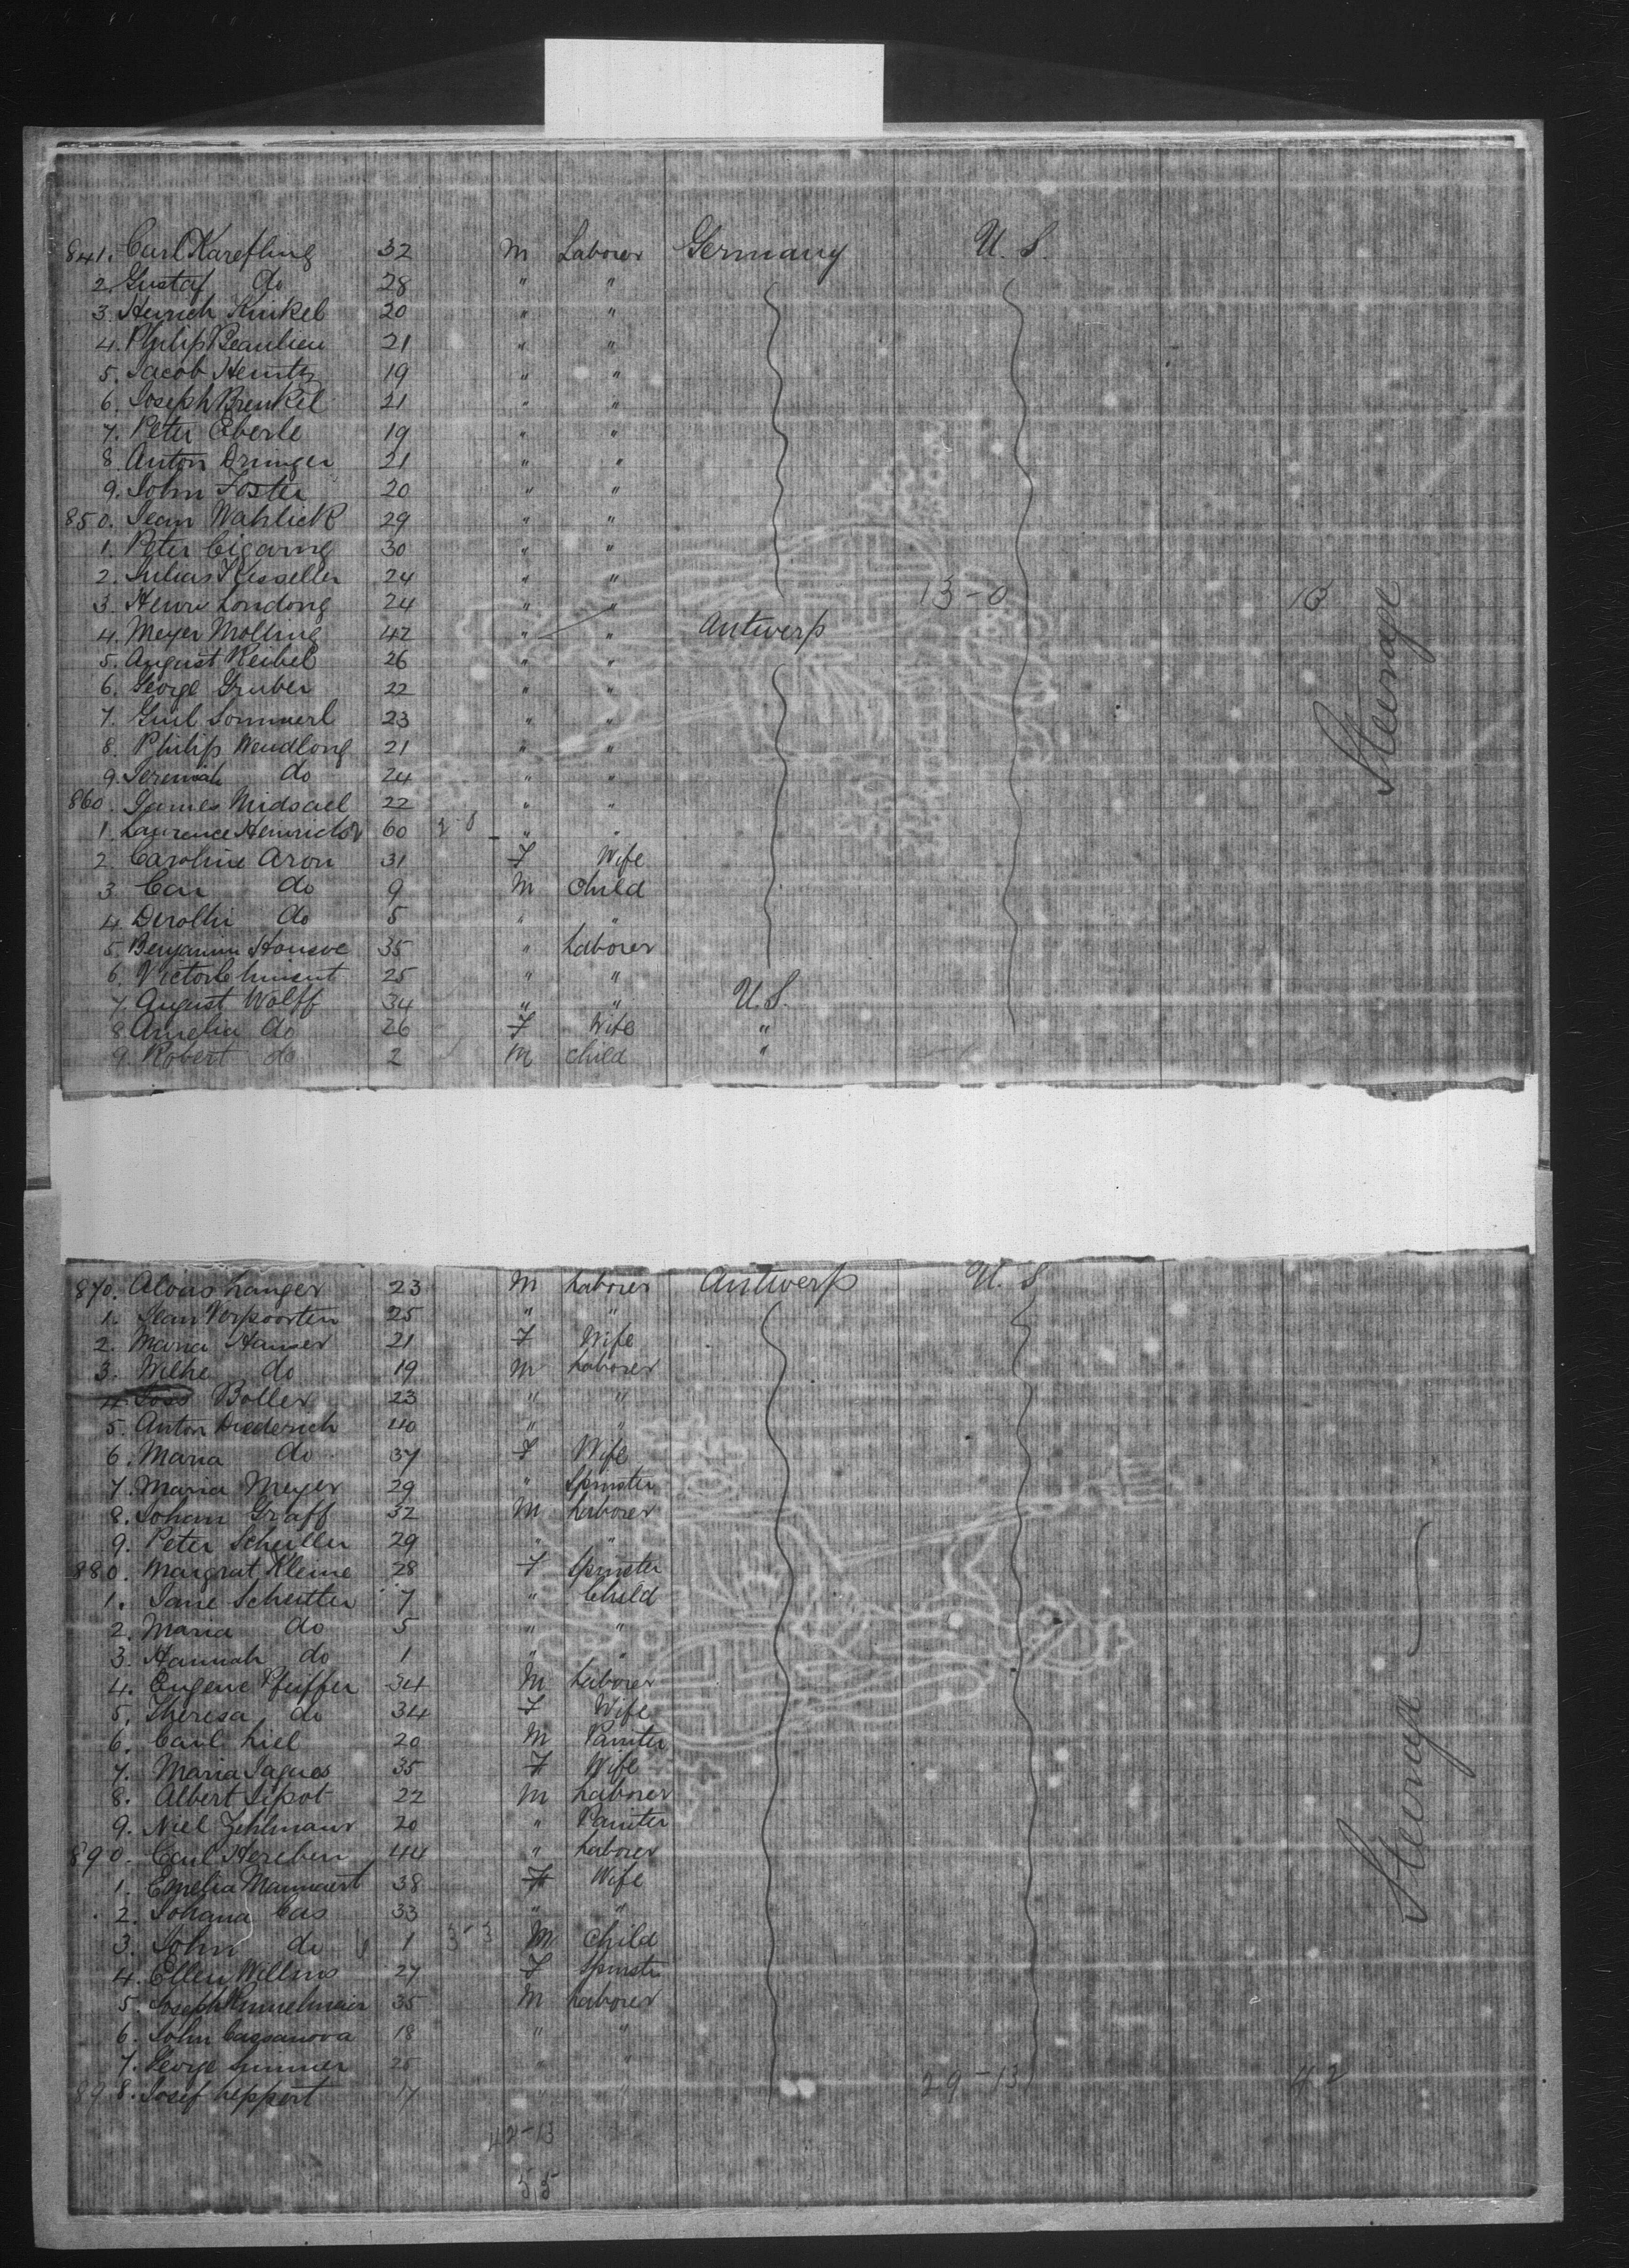 841. Carl Karefling 32 M Laborer Germany U. S.
2. Gustaf do 28 " "
3. Henrich Kinkel 20 " "
4. Philip Beaulieu 21 " "
5. Jacob Heintz 19 " "
6. Joseph Brenkel 21 " "
7. Peter Eberle 19 " "
8. Anton Dringer 21 " "
9. John Foster 20 " "
850. Jean Wahlick 29 " "
1. Peter 30 " "
2. Julius Kesseller 24 " "
3. Henri Londong 24 " " 13-0
4. Meyer Molling 42 " " Antwerp
5. August Reibel 26 " "
6. George Gruber 22 " "
7. Guil Sommerl 23 " "
8. Philip Wendlong 21 " "
9. Jeremiah do 24 " "
860. James Midsael 22 " "
1. Laurence 60 " "
2. Caroline Aron 31 F Wife
3. do 9 M Child
4. do 5 " "
5. Benjamin 35 " Laborer
6. Victor 25 " "
7. August Wolff 34 " " U. S.
8. Amelia do 26 F Wife "
9. Robert do 2 M Child "
Steerage
870. Alois Langer 23 M Laborer Antwerp U. S.
1. Jean Verpoorten 25 " "
2. Maria Hauser 21 F Wife
3. Wilhe do 19 M Laborer
4. Boller 23 " "
5. Anton Diederich 40 " "
6. Maria do 37 F Wife
7. Maria Meyer 29 " Spinster
8. Johan Graff 32 M Laborer
9. Peter Schuller 29 " "
880. Margrat Kleine 28 F Spinster
1. Jane Scheitter 7 " Child
2. Maria do 5 " "
3. Hannah do 1 " "
4. Eugene Pfeiffer 34 M Laborer
5. Theresa do 34 F Wife
6. Carl Liel 20 M Painter
7. Maria Jaques 35 F Wife
8. Albert Sipot 22 M Laborer
9. Niel 20 " Painter
890. Carl 44 " Laborer
1. Emelia Mannaert 38 F Wife
2. Johana Cas 33 " "
3. John do 1 3-3 M Child
4. Ellen Willms 27 F Spinster
5. Joseph 35 M Laborer
6. John Cassanova 18 " "
7. George 25 " "
898. Josef Leppert 17 " " 29-13 42
Steerage
42-13
55